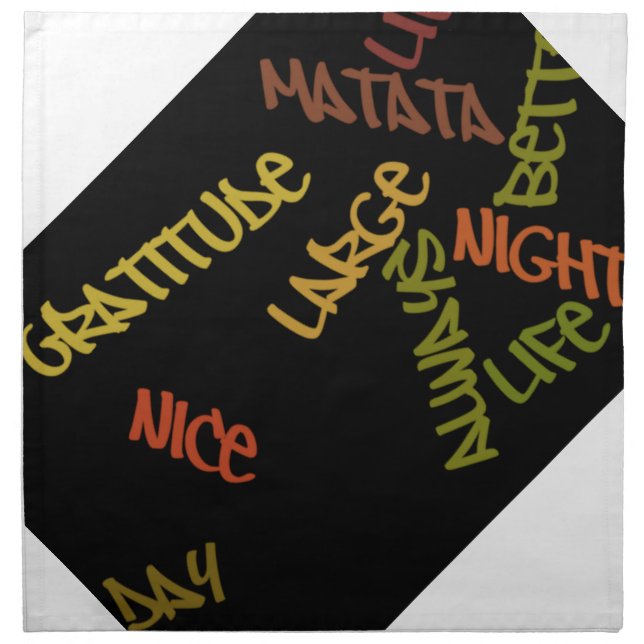 MATATA
GRATITUDE
LARGE
NIGHT
ALWAYS
LIFE
NICE
DAY